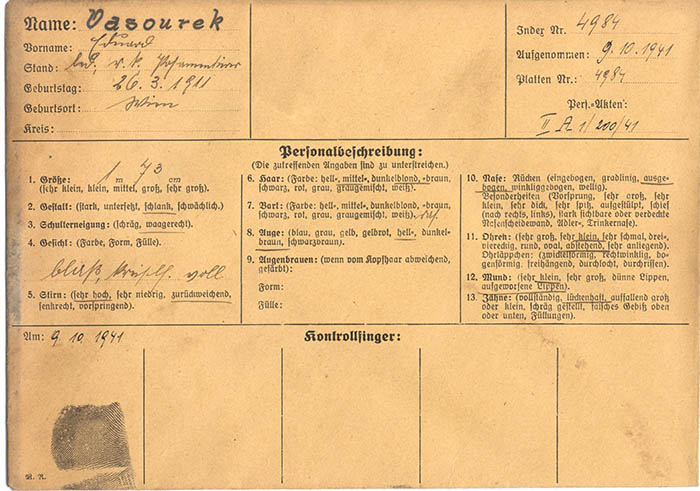 Name: Vasourek
Vorname: Eduard
Stand: led. r. k. Posamentierer
Geburtstag: 26. 3. 1911
Geburtsort: Wien
Kreis:
Index Nr. 4984
Aufgenommen: 9. 10. 1941
Platten Nr.: 4984
Pers.-Akten:
II A 1/200/41
Personalbeschreibung:
(Die zutreffenden Angaben sind zu unterstreichen.)
1. Größe: 1 m 73 cm
(sehr klein, klein, mittel, groß, sehr groß).
2. Gestalt: (stark, untersetzt, schlank, schwächlich.)
3. Schulterneigung: (schräg, waagerecht).
4. Gesicht: (Farbe, Form, Fülle).
blaß, voll
5. Stirn: (sehr hoch, sehr niedrig, zurückweichend,
senkrecht, vorspringend).
6. Haar: (Farbe: hell-, mittel-, dunkelblond, -braun,
schwarz, rot, grau, graugemischt, weiß).
7. Bart: (Farbe: hell-, mittel-, dunkelblond, -braun,
schwarz, rot, grau, graugemischt, weiß).
8. Auge: (blau, grau, gelb, gelbrot, hell-, dunkel-
braun, schwarzbraun).
9. Augenbrauen: (wenn vom Kopfhaar abweichend,
gefärbt):
Form:
Fülle:
10. Nase: Rücken (eingebogen, gradlinig, ausge-
bogen, winkliggebogen, wellig).
Besonderheiten (Vorsprung, sehr groß, sehr
klein, sehr dick, sehr spitz, aufgestülpt, schief
(nach rechts, links), stark sichtbare oder verdeckte
Nasenscheidewand, Adler-, Trinkernase).
11. Ohren: (sehr groß, sehr klein, sehr schmal, drei-,
viereckig, rund, oval, abstehend, sehr anliegend).
Ohrläppchen: (zwickelförmig, rechtwinklig, bo-
genförmig, freihängend, durchlocht, durchrissen).
12. Mund: (sehr klein, sehr groß, dünne Lippen,
aufgeworfene Lippen).
13. Zähne: (vollständig, lückenhaft, auffallend groß
oder klein, schräg gestellt, falsches Gebiß oben
oder unten, Füllungen).
Am: 9. 10. 1941
Kontrollfinger: